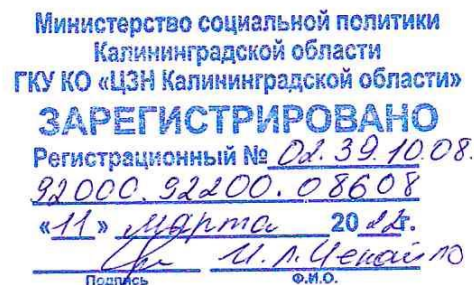 Министерство социальной политики
Калининградской области
ГКУ КО «ЦЗН Калининградской области»
ЗАРЕГИСТРИРОВАНО
Регистрационный № 02.39.10.08.
92000.92200.08608
«11» марта 2022г.
И.Л.
Подпись Ф.И.О.